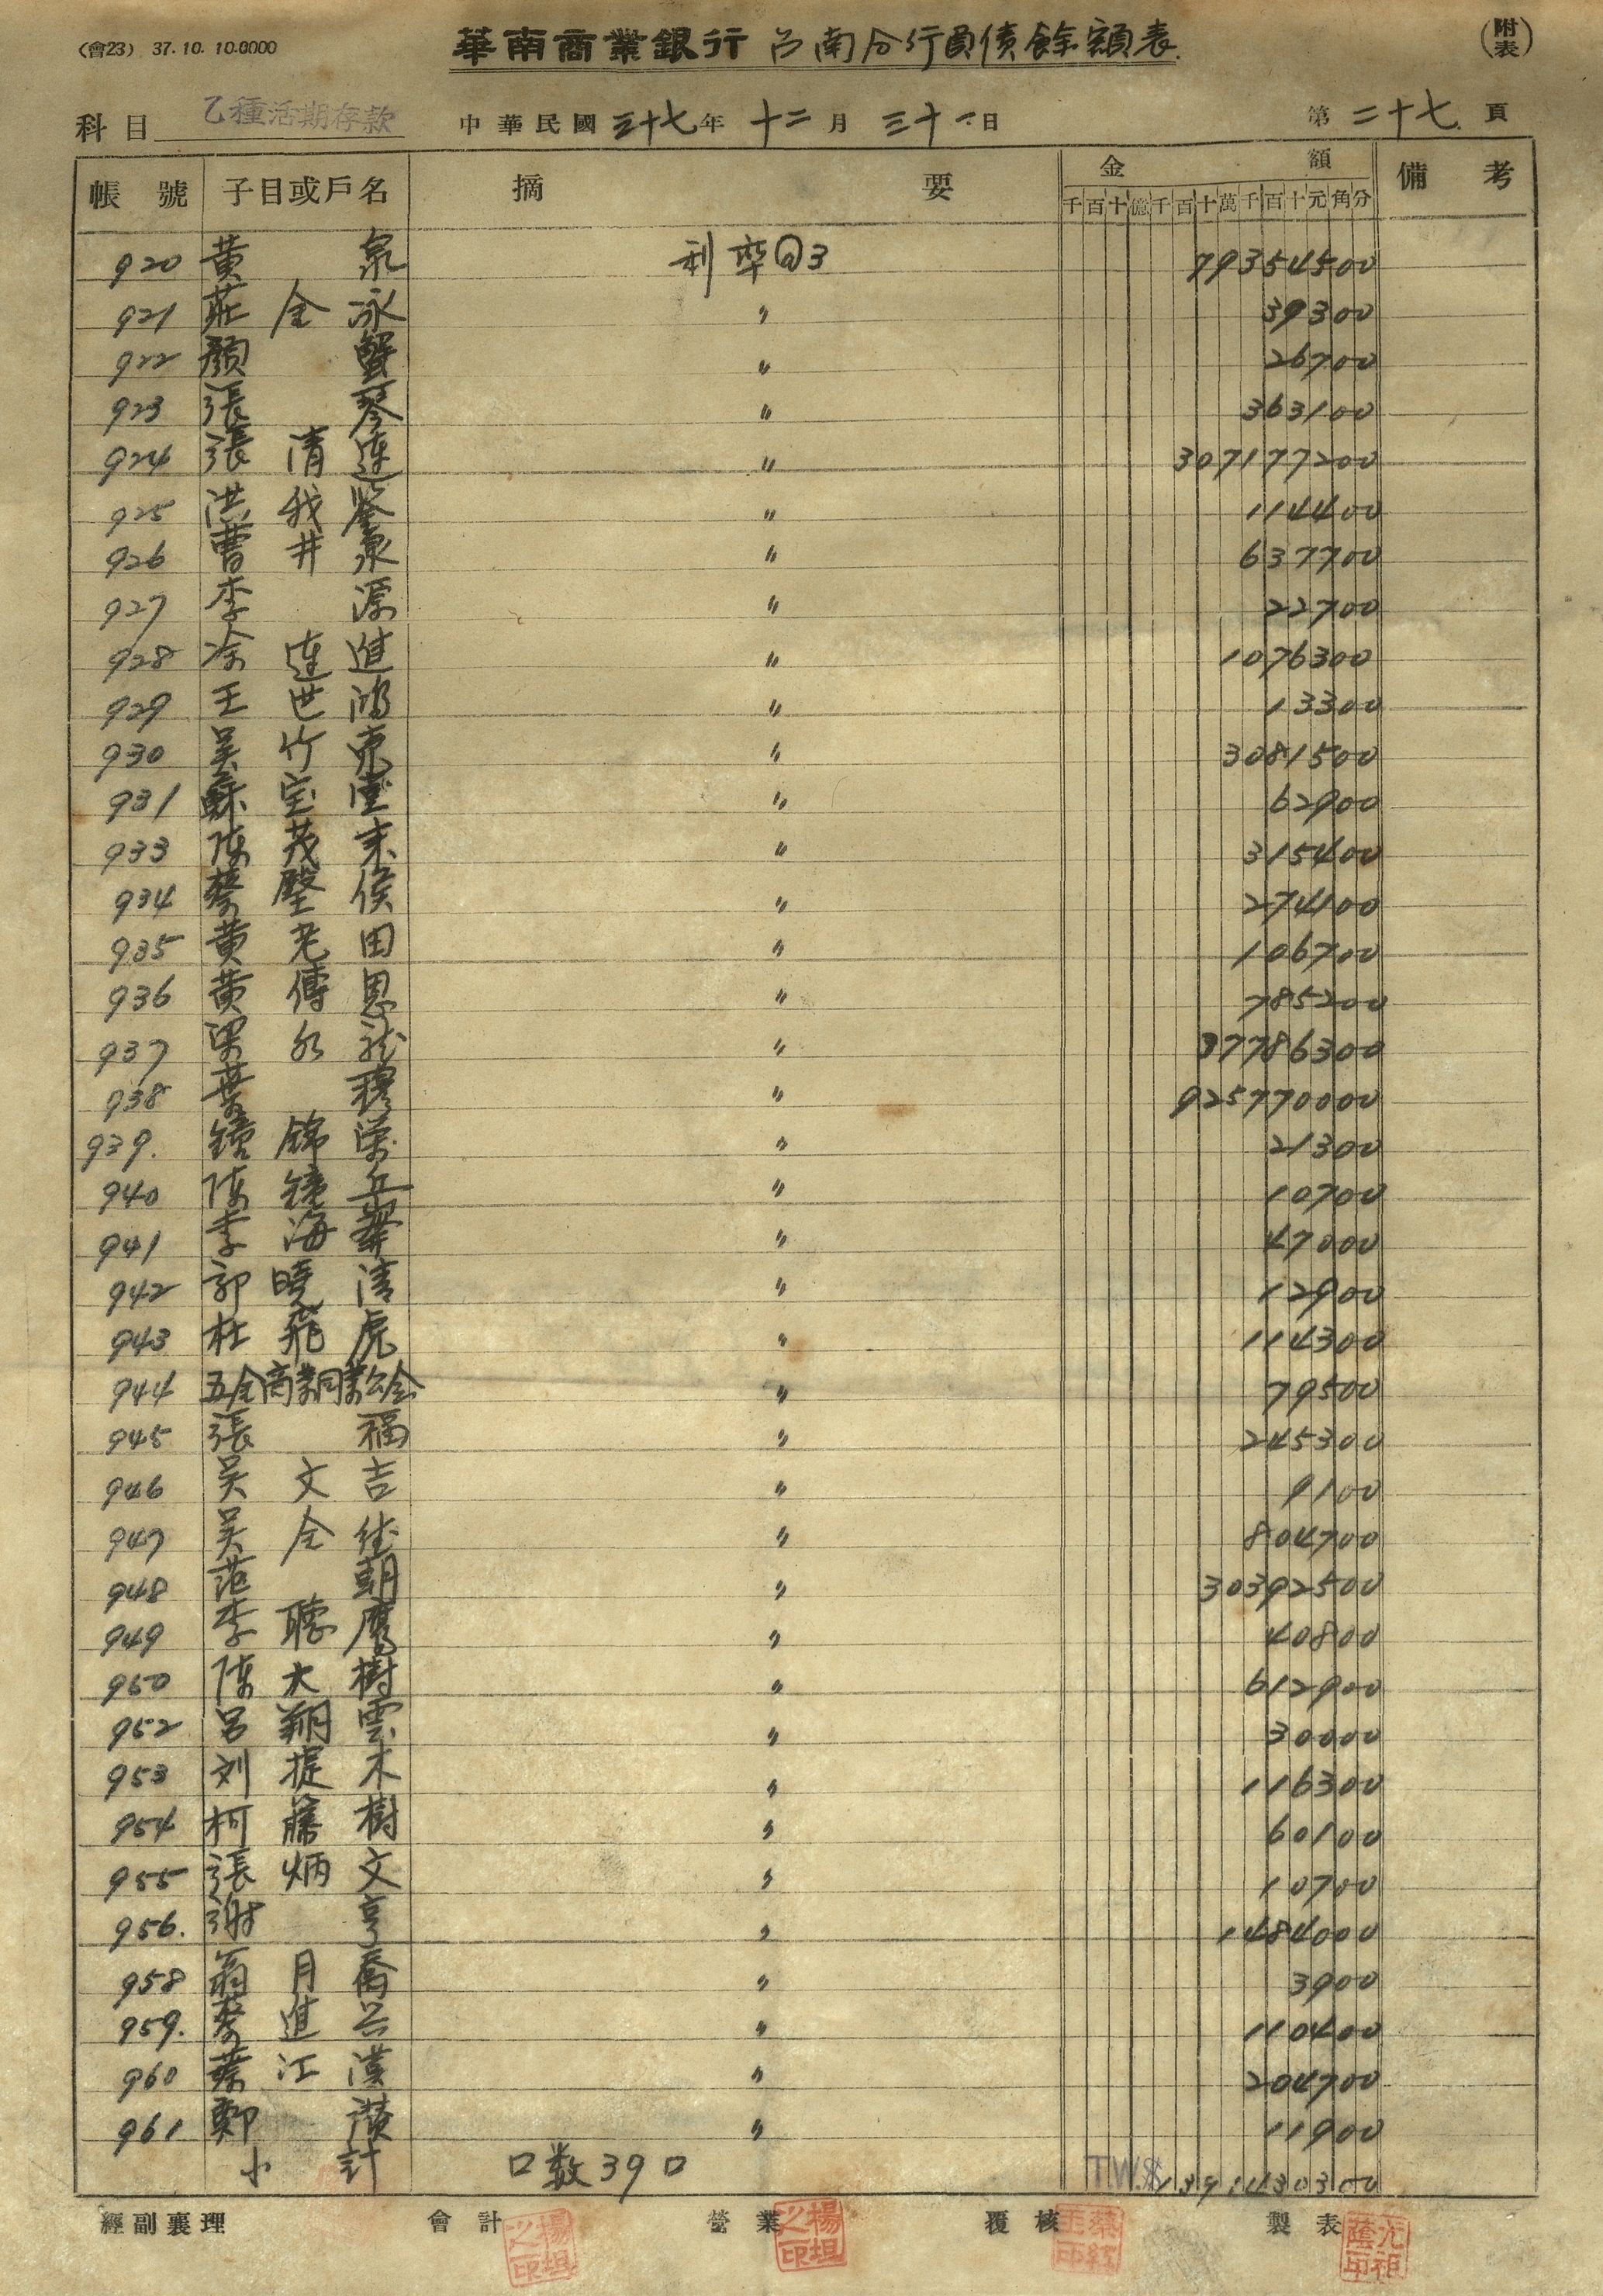 (會23) 37.10.10.0000
華南商業銀行 台南分行負債餘額表
(附表)
科目 乙種活期存款 中華民國三十七年 十二月 三十一日 第二十七頁
帳號 子目或戶名 摘要 金額 備考
千百十億千百十萬千百十元角分
920 黃泉 利率@3 79354500
921 莊全泳 〃 39300
922 顏蟹 〃 26700
923 張琴 〃 363100
924 張清連 〃 307177200
925 洪我鑒 〃 114400
926 曹井泉 〃 637700
927 李源 〃 22700
928 涂連進 〃 1076300
929 王世鴻 〃 13300
930 吳竹東 〃 3081500
931 蘇宝堂 〃 62900
933 陳茂来 〃 315400
934 蔡堅侯 〃 274100
935 黃老田 〃 106700
936 黃傳恩 〃 785200
937 梁水龍 〃 37786300
938 葉穆 〃 925770000
939. 鐘錦榮 〃 21300
940 陳鏡兵 〃 10700
941 李海華 〃 47000
942 郭曉清 〃 12900
943 杜飛虎 〃 114300
944 五金商業同業公会 〃 79500
945 張福 〃 245300
946 吳文吉 〃 9100
947 吳全 〃 804700
948 范朝 〃 30392500
949 李聰鷹 〃 40800
950 陳大樹 〃 612900
952 呂翔雲 〃 30000
953 刘提木 〃 116300
954 柯藤樹 〃 60100
955 張炳文 〃 10700
956. 謝亨 〃 1484000
958 翁月喬 〃 3900
959. 蔡進兴 〃 110400
960 蔡江漢 〃 204700
961 鄭讚 〃 11900
小計 口数39口 T.W.$ 1391430300
經副襄理 會計 營業 覆核 製表
楊坦之印 楊坦之印